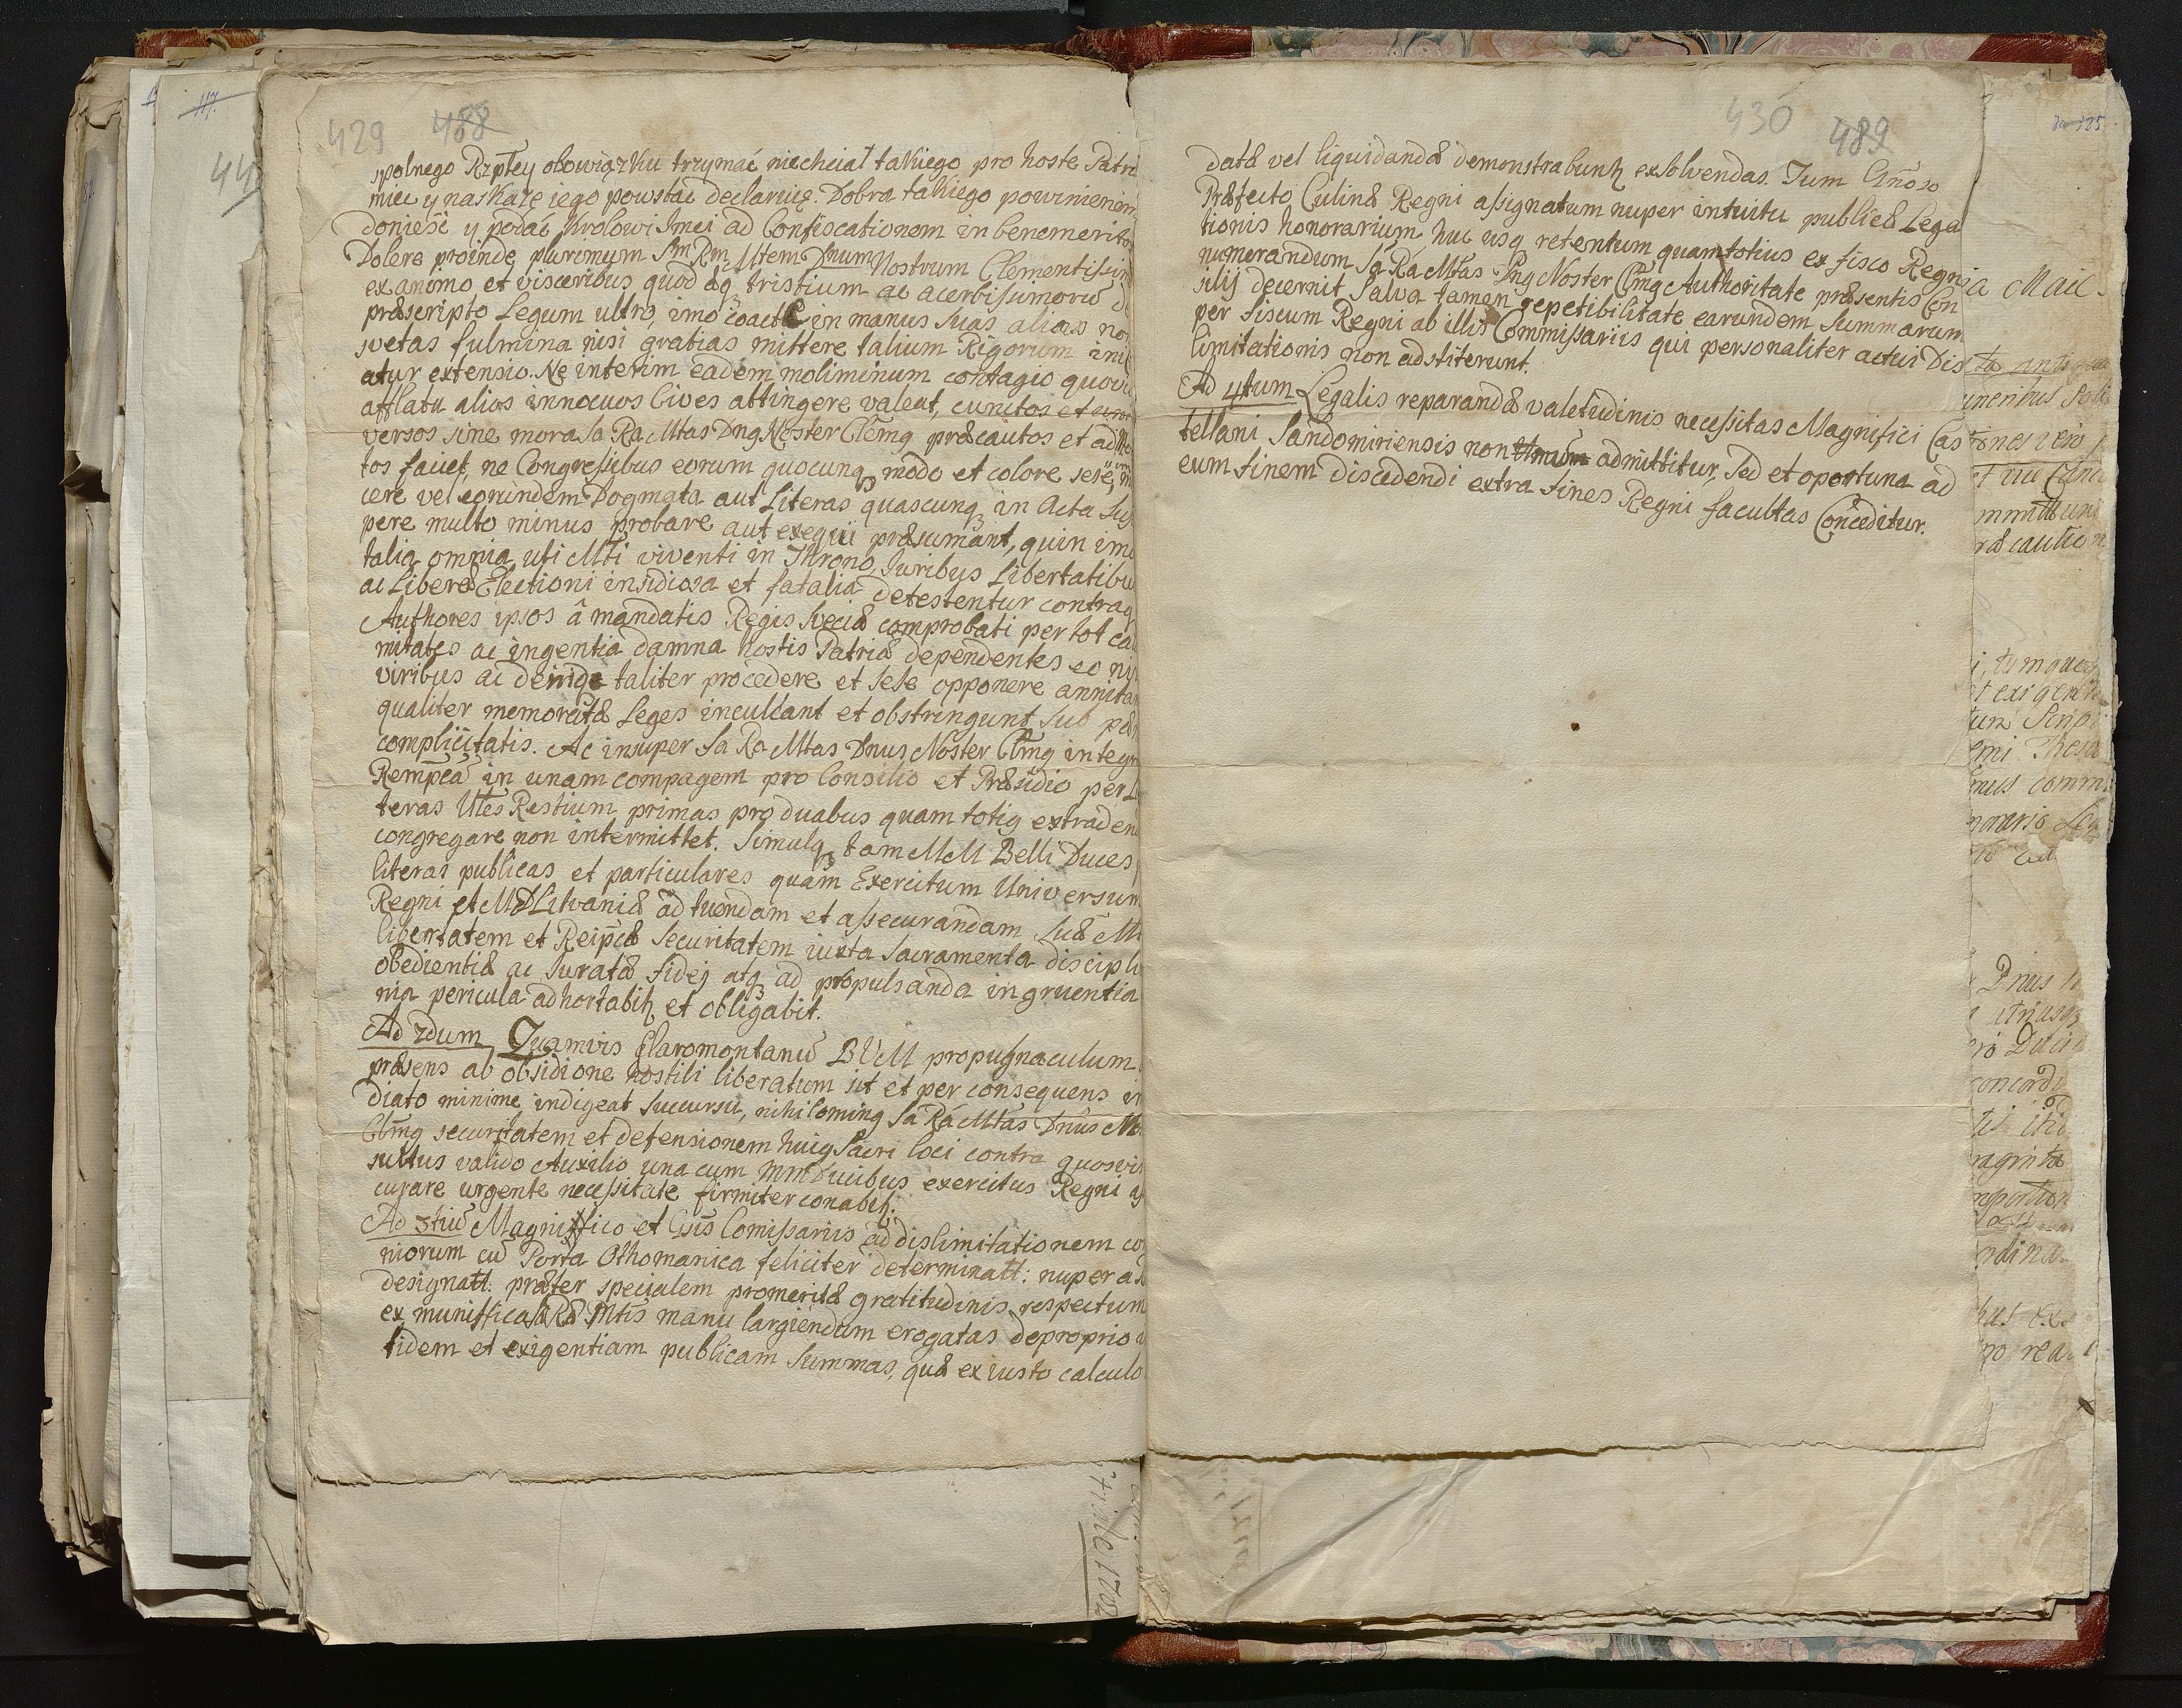 429 488
spolnego Rzptey obowiązku trzymać niechciał takiego pro hoste Patri
miec y naskazę iego powstac declaruię. Dobra takiego powinienem
donieść y podać Krolowi Jmci ad Confiscationem in benemeritos
Dolere proinde plurimum Sm Rm Mtem Dnum Nostrum Clementissim
ex animo et visceribus quod aeq tristium ac acerbissimorū de
praescripto Legum ultro, imo coacte in manus suas alias non
svetas fulmina nisi gratias mittere talium Rigorum
atur extensio. Ne interim eadem moliminum contagio quovis
afflatu alios innocuos Cives attingere valeat, cunctos et
versos sine mora Sa Ra Mtas Dnq Noster Clemq praecautos et
tos faciet, ne Congressibus eorum quocunq modo et colore sese,
cere vel eorundem Dogmata aut Literas quascunq in Acta Sus
pere multo minus probare aut exequi praesumant, quin imo
talia omnia uti Mti viventi in Throno, Iuribus Libertatibu
ac Liberae Electioni insidiosa et fatalia detestentur contraq
Authores ipsos â mandatis Regis Sveciae comprobati per tot cala
mitates ac ingentia damna hostis Patriae dependentes eo
viribus ac deniq taliter procedere et sese opponere annitan
qualiter memoratae Leges inculcant et obstringunt sub paen
complicitatis. Ac insuper Sa Ra Mtas Dnus Noster Clmq integra
Rempcā in unam compagem pro Consilio et Praesidio per Li
teras Utes Restium primas pro duabus quam totiq extraden
congregare non intermittet. Simulq tam MM Belli Duces
literas publicas et particulares quam Exercitum Universum
Regni et MDLitvaniae ad tuendam et assecurandam Suae Mt
libertatem et Reipcae Securitatem iuxta Sacramenta discipli
obedientiae ac Iuratae fidej atq ad propulsanda ingruentia
nia pericula adhortabitz et obligabit.
Ad 2dum Quamvis Claromontanū BVM propugnaculum
praesens ab obsidione hostili liberatum sit et per consequens im
diato minime indigeat Succursu, nihilominq Sa Ra Mtas Dnus No
Clmq securitatem et defensionem huiq Sacri loci contra quosvis
sultus valido Auxilio una cum MM Ducibus exercitus Regni
curare urgente necessitate firmiter conabitz.
Ad 3tiū Magniffico et Gsis Comissariis ad dislimitationem co
niorum cū Porta Othomanica feliciter determinatt: nuper ad
designatt: praeter specialem promeritae gratitudinis respectum
ex muniffica SRae Mtis manu largiendum erogatas de proprio
fidem et exigentiam publicam Summas, quae ex iusto calculo
430 489
datae vel liquidandae demonstrabuntz exsolvendas. Tum Gñoso
Praefecto Culinae Regni assignatum nuper intuitu publicae Lega
tionis honorarium huc usq retentum quamtotius ex fisco Regni
numerandum Sa Ra Mtas Dnq Noster Clmq Authoritate praesentis Con
silij decernit Salva tamen repetibilitate earundem Summarum
per Fiscum Regni ab illis Commissariis qui personaliter actui Dis
limitationis non adstiterunt.
Ad 4tum Legalis reparandae valetudinis necessitas Magnifici Cas
tellani Sandomiriensis non admittitur, Sed et oportuna ad
eum finem discedendi extra fines Regni facultas Conceditur.